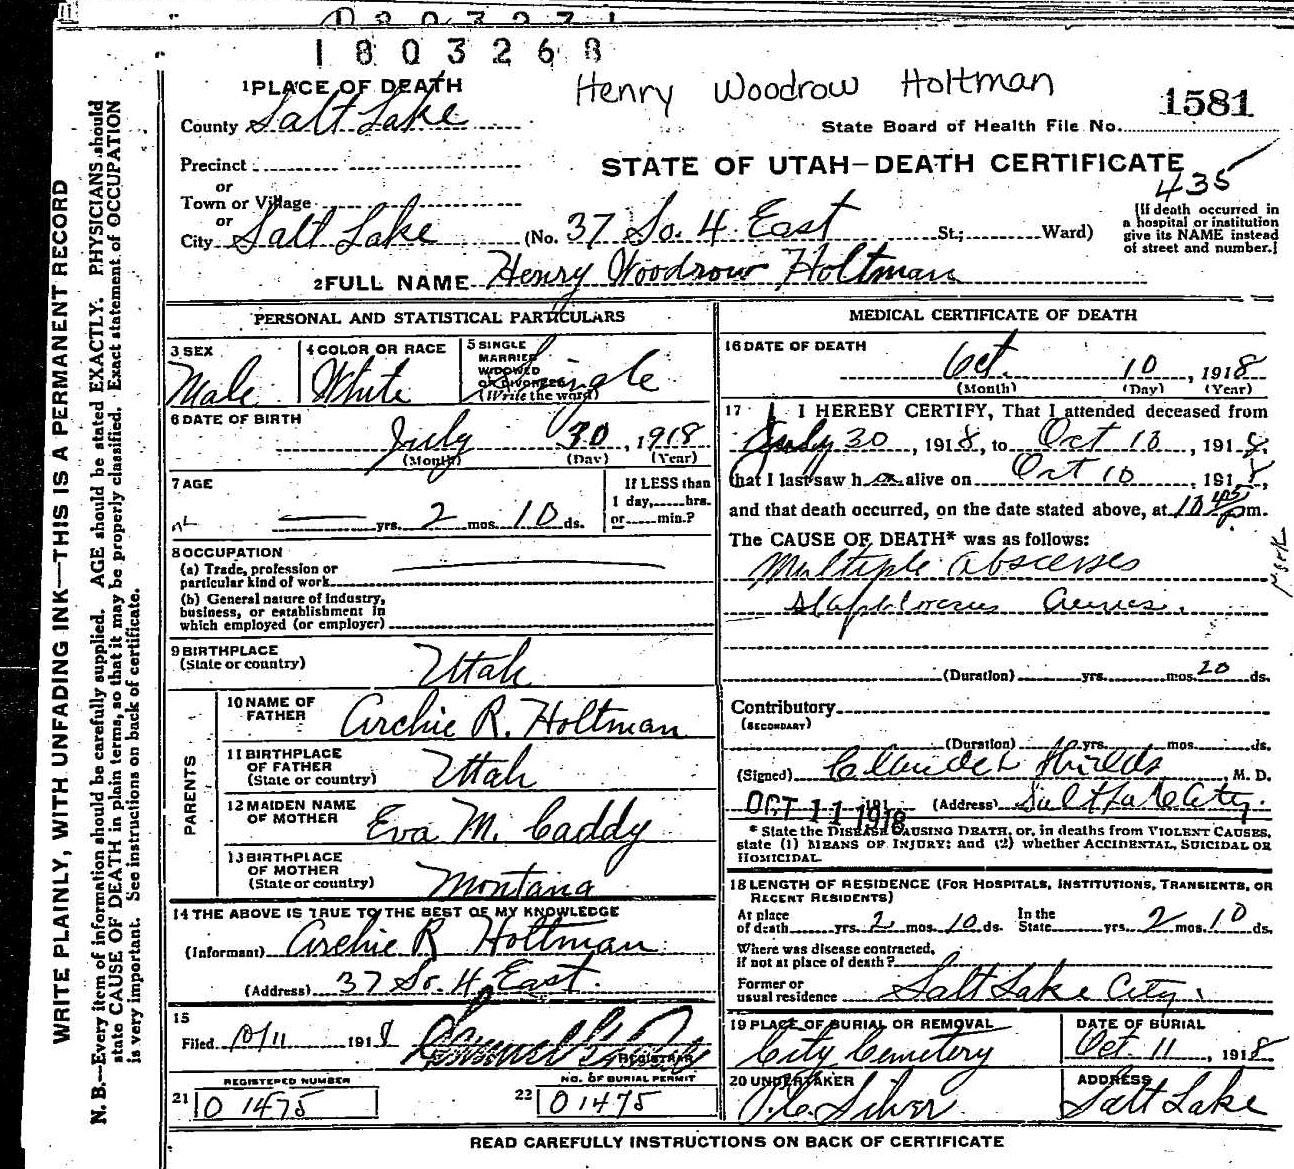 1803268
1 PLACE OF DEATH
Henry Woodrow Holtman
1581
County Salt Lake
State Board of Health File No.
Precinct
STATE OF UTAH—DEATH CERTIFICATE
or
435
Town or Village
or
City Salt Lake (No. 37 So. 4 East St.; Ward)
[If death occurred in
a hospital or institution
give its NAME instead
of street and number.]
2 FULL NAME Henry Woodrow Holtman
PERSONAL AND STATISTICAL PARTICULARS
3 SEX
Male
4 COLOR OR RACE
White
5 SINGLE
MARRIED
WIDOWED
OR DIVORCED
(Write the word)
Single
6 DATE OF BIRTH
July 30, 1918
(Month) (Day) (Year)
7 AGE
yrs. 2 mos. 10 ds.
If LESS than
1 day, hrs.
or min.?
8 OCCUPATION
(a) Trade, profession or
particular kind of work
(b) General nature of industry,
business, or establishment in
which employed (or employer)
9 BIRTHPLACE
(State or country)
Utah
PARENTS
10 NAME OF
FATHER
Archie R. Holtman
11 BIRTHPLACE
OF FATHER
(State or country)
Utah
12 MAIDEN NAME
OF MOTHER
Eva M. Caddy
13 BIRTHPLACE
OF MOTHER
(State or country)
Montana
14 THE ABOVE IS TRUE TO THE BEST OF MY KNOWLEDGE
(Informant) Archie R Holtman
(Address) 37 So. 4 East.
15
Filed 10/11 1918
REGISTRAR
REGISTERED NUMBER
21 01475
NO. OF BURIAL PERMIT
22 01475
MEDICAL CERTIFICATE OF DEATH
16 DATE OF DEATH
Oct. 10, 1918
(Month) (Day) (Year)
17 I HEREBY CERTIFY, That I attended deceased from
July 30, 1918, to Oct 10, 1918,
that I last saw h alive on Oct 10, 1918,
and that death occurred, on the date stated above, at 10 45 p m.
The CAUSE OF DEATH* was as follows:
Multiple abscesses
(Duration) yrs. mos. 20 ds.
Contributory
(SECONDARY)
(Duration) yrs. mos. ds.
(Signed) Shields, M. D.
OCT 11 1918 191 (Address) Salt Lake City.
* State the DISEASE CAUSING DEATH, or, in deaths from VIOLENT CAUSES,
state (1) MEANS OF INJURY; and (2) whether ACCIDENTAL, SUICIDAL OR
HOMICIDAL.
18 LENGTH OF RESIDENCE (FOR HOSPITALS, INSTITUTIONS, TRANSIENTS, OR
RECENT RESIDENTS)
At place
of death yrs. 2 mos. 10 ds.
In the
State yrs. 2 mos. 10 ds.
Where was disease contracted,
if not at place of death?
Former or
usual residence Salt Lake City.
19 PLACE OF BURIAL OR REMOVAL
City Cemetery
DATE OF BURIAL
Oct. 11, 1918
20 UNDERTAKER
Silver
ADDRESS
Salt Lake
READ CAREFULLY INSTRUCTIONS ON BACK OF CERTIFICATE
WRITE PLAINLY, WITH UNFADING INK—THIS IS A PERMANENT RECORD
N. B.—Every item of information should be carefully supplied. AGE should be stated EXACTLY. PHYSICIANS should
state CAUSE OF DEATH in plain terms, so that it may be properly classified. Exact statement of OCCUPATION
is very important. See instructions on back of certificate.